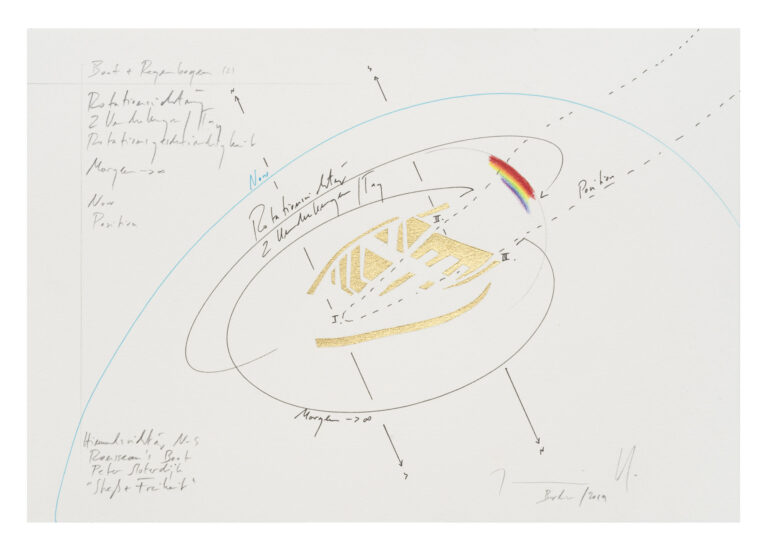 Boot + Regenbogen
Rotationsrichtung
2 Umdrehungen / Tag
Rotationsgeschwindigkeit
Morgen -> ∞
Now
Position
N
S
Now
Rotationsrichtung
2 Umdrehungen / Tag
Position
II.
III.
I.
Morgen -> ∞
N
Himmelsrichtung N-S
Rousseau's Boot
Peter Sloterdijk
"Streß + Freiheit"
Berlin / 2019